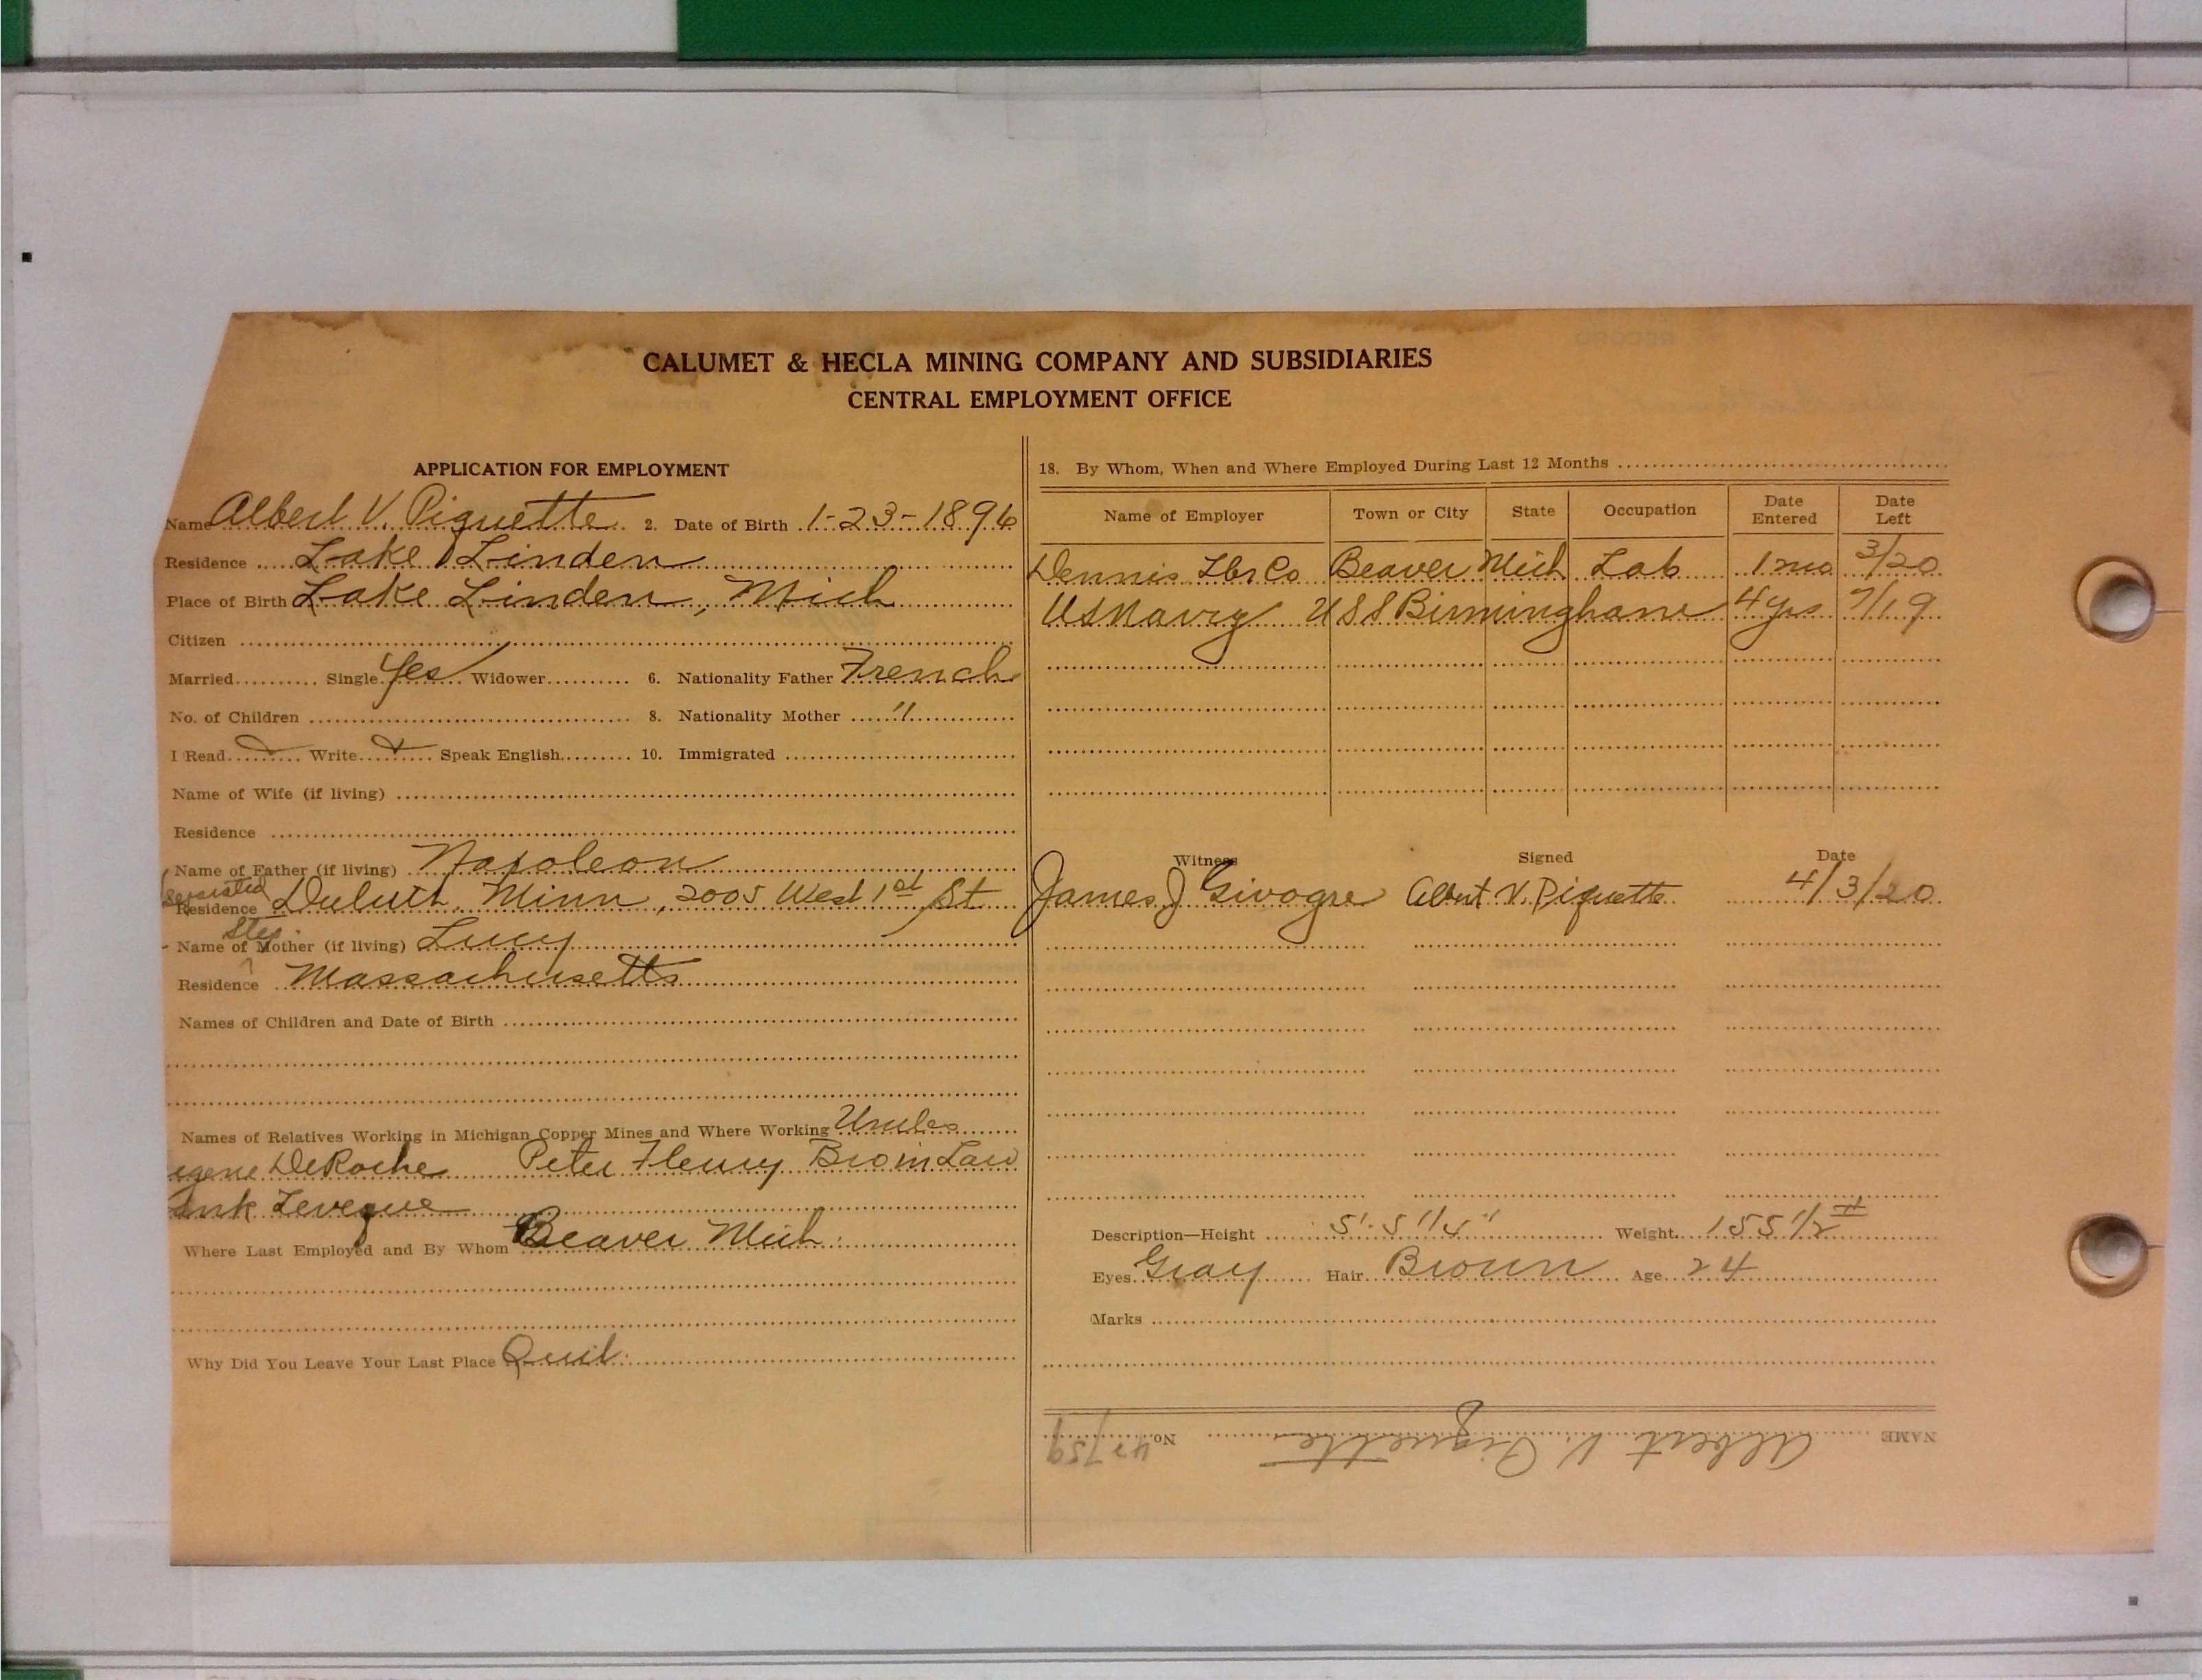 CALUMET & HECLA MINING COMPANY AND SUBSIDIARIES
CENTRAL EMPLOYMENT OFFICE
APPLICATION FOR EMPLOYMENT
Name Albert V. Piquette 2. Date of Birth 1-23-1896
Residence Lake Linden
Place of Birth Lake Linden, Mich
Citizen
Married Single Yes Widower 6. Nationality Father French
No. of Children 8. Nationality Mother "
I Read Write Speak English 10. Immigrated
Name of Wife (if living)
Residence
Name of Father (if living) Napoleon
(Separated
Residence Duluth, Minn, 2005 West 1st St
Step
Name of Mother (if living) Lucy
Residence Massachusetts
Names of Children and Date of Birth
Names of Relatives Working in Michigan Copper Mines and Where Working Uncles
egene DeRoche Peter Fleury Bro in Law
ank Leveque
Where Last Employed and By Whom Beaver Mich.
Why Did You Leave Your Last Place Quit.
18. By Whom, When and Where Employed During Last 12 Months
Name of Employer Town or City State Occupation Date Entered Date Left
Dennis Lbr Co Beaver Mich Lab 1 mo 3/20
US Navy USS Birmingham 4 yrs 7/19
Witness Signed Date
James J Givogre Albert V. Piquette 4/3/20
Description—Height 5'. 5 1/4" Weight 155 1/2 #
Eyes Gray Hair Brown Age 24
Marks
NAME Albert V. Piquette No. 42759